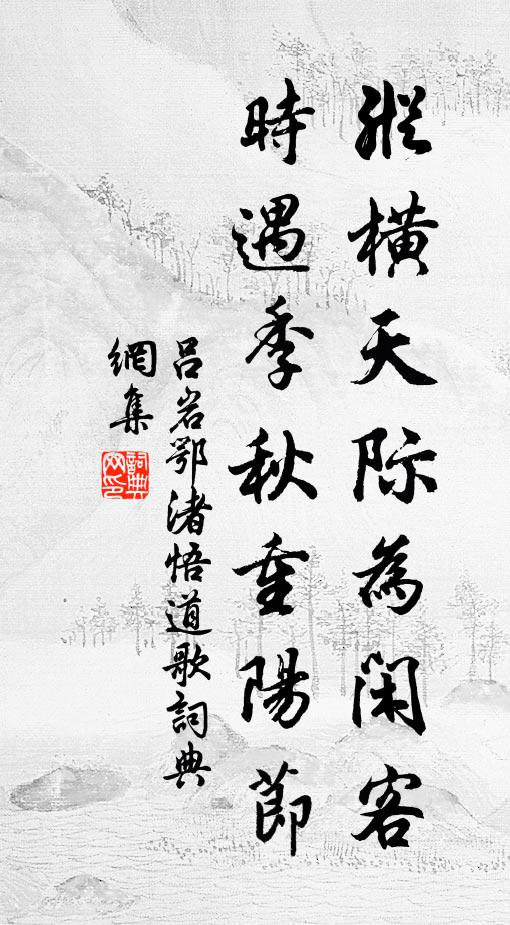 縱橫天际為閑客
時遇季秋重陽節
吕岩鄂渚悟道歌詞典
網集
詞典
网印